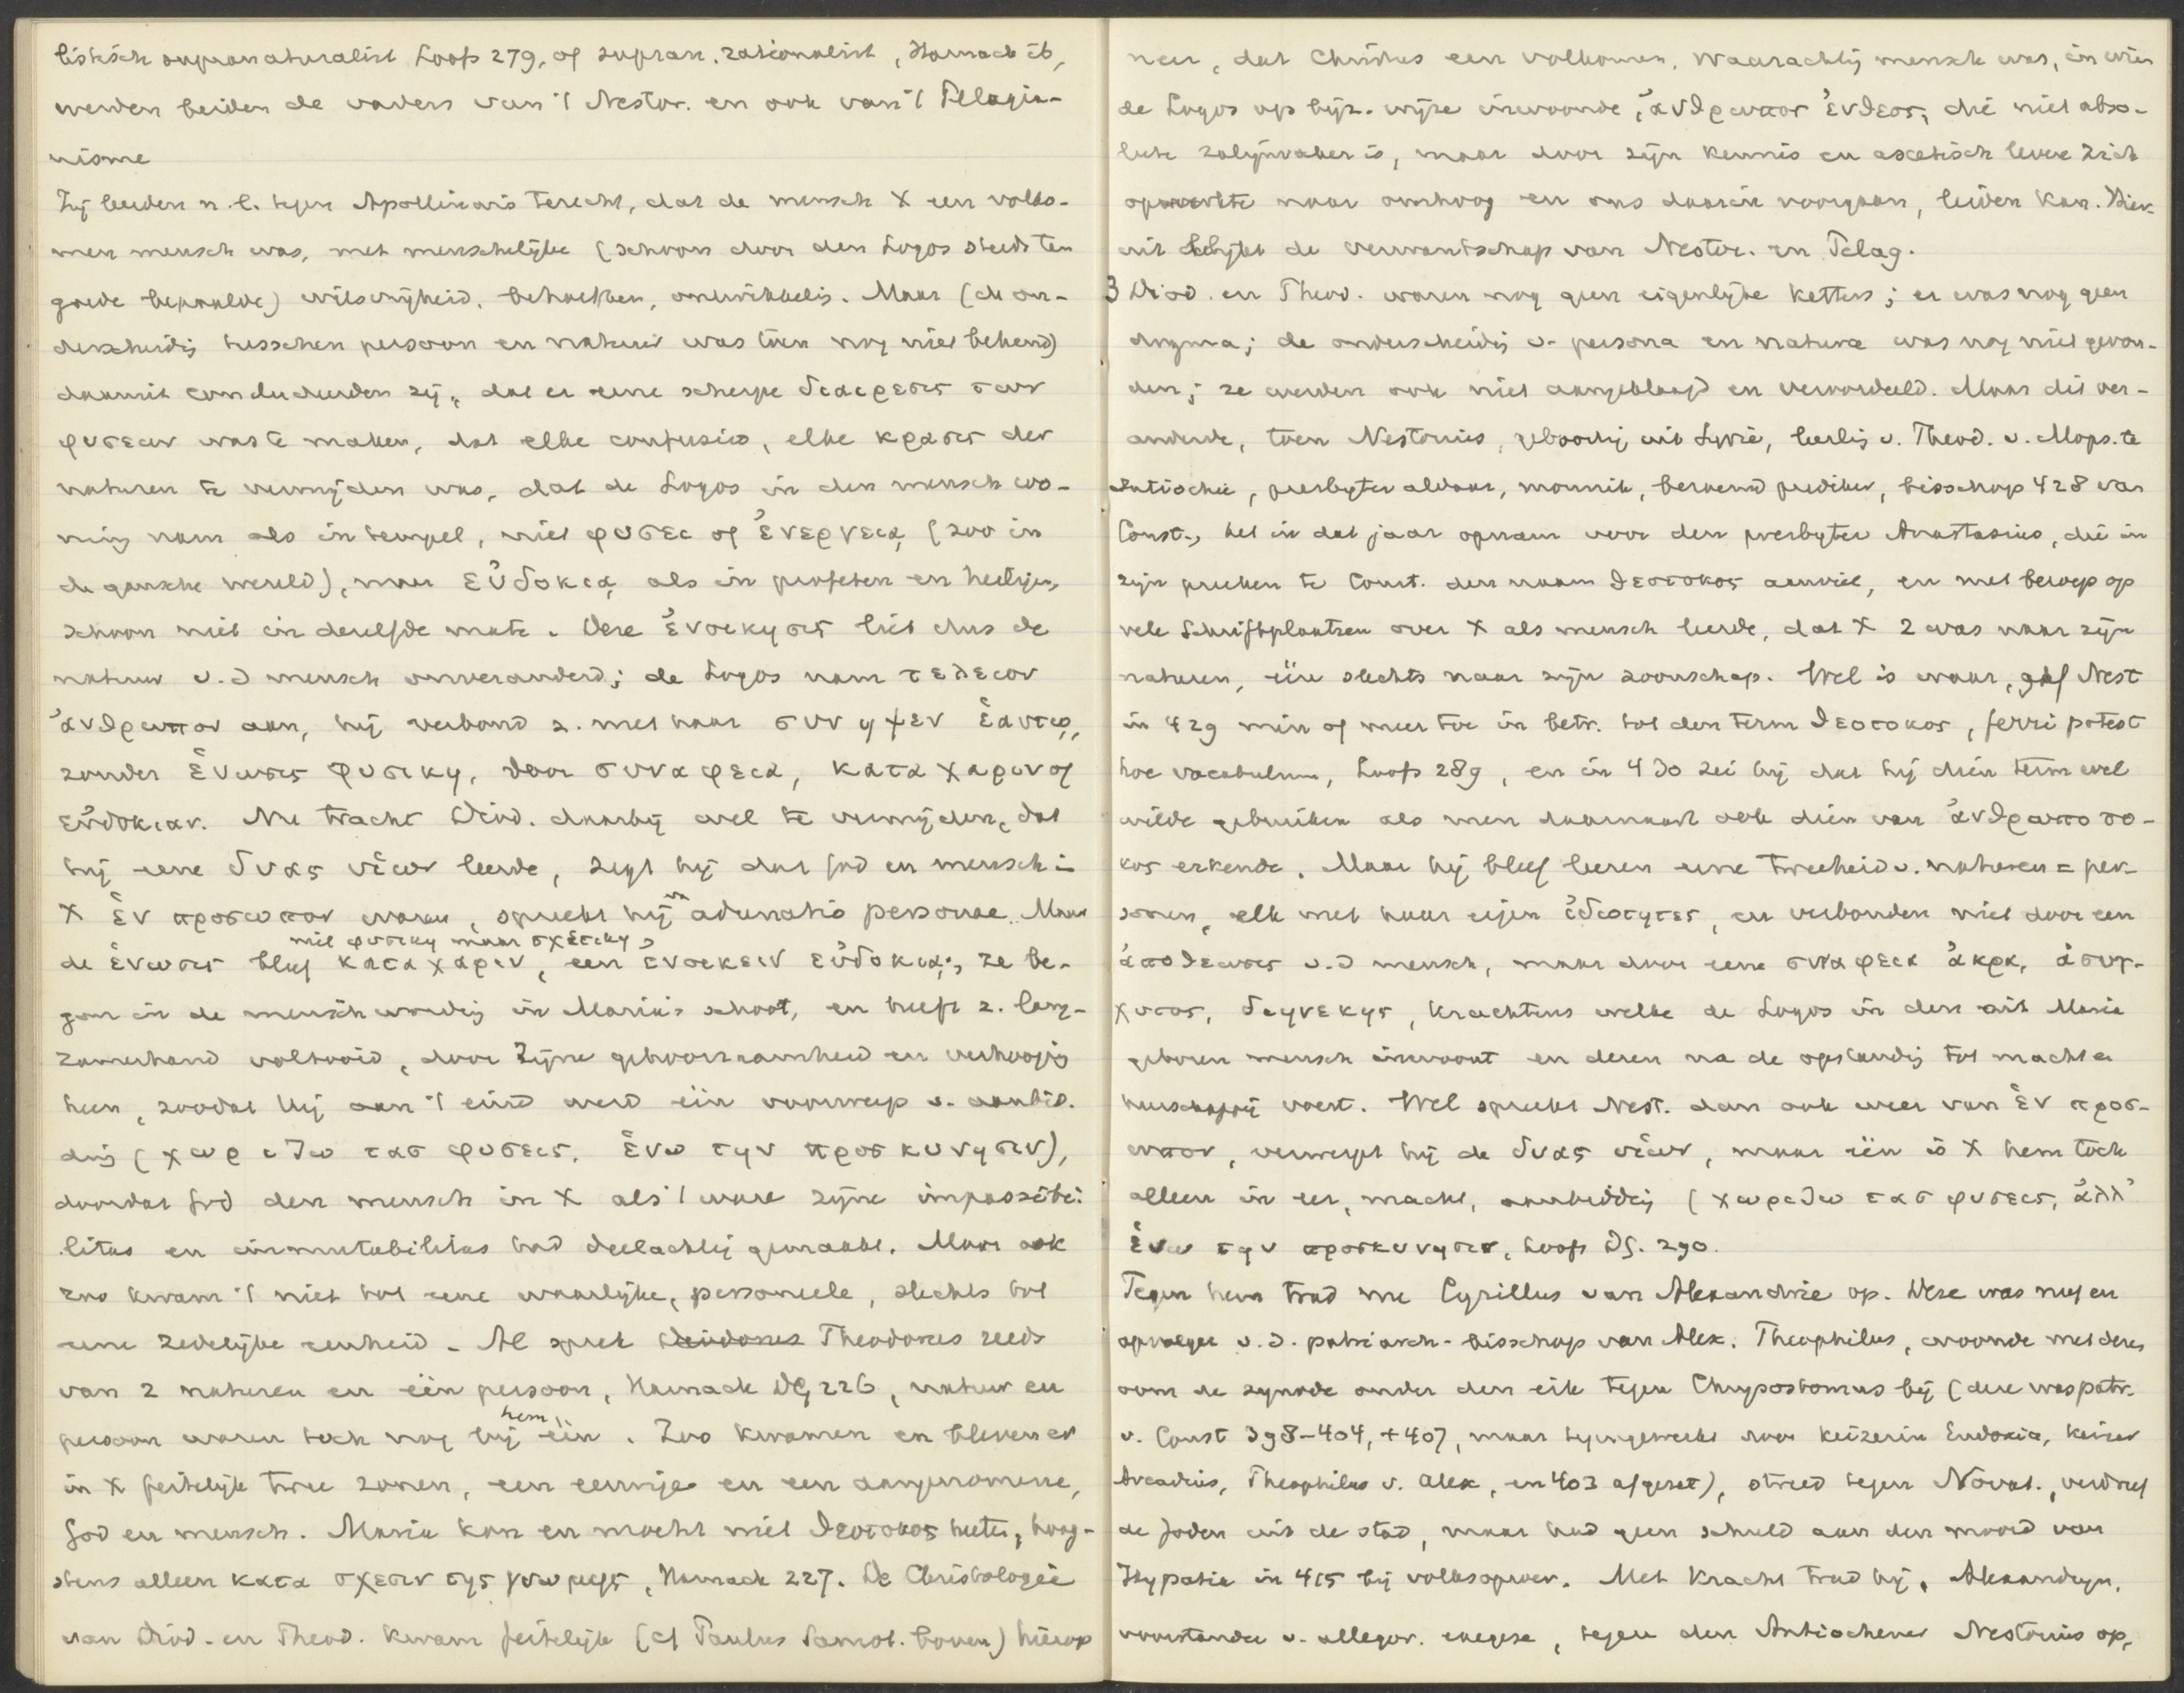 listisch supranaturalist Loofs 279, of supran. rationalist, Harnack ib,
werden beiden de vaders van 't Nestor. en ook van 't Pelagia-
nisme
Zij leerden n.l. tegen Apollinaris terecht, dat de mensch X een volko-
men mensch was, met menschelijke (schoon door den Logos steeds ten
goede bepaalde) wilsvrijheid, behoeften, ontwikkelig. Maar (de on-
derscheidig tusschen persoon en natuur was toen nog niet bekend)
daaruit concludeerden zij, dat er eene scherpe διαιρεσις των
φυσεων was te maken, dat elke confusio, elke κρασις der
naturen te vermijden was, dat de Logos in den mensch wo-
ning nam als in tempel, niet φυσει of ἐνεργειᾳ (zoo in
de gansche wereld), maar εὐδοκιᾳ als in profeten en heiligen,
schoon niet in dezelfde mate. Deze ἐνοικησις liet dus de
natuur v.d mensch onveranderd; de Logos nam τελειον
ἀνθρωπον aan, hij verbond z. met haar συνηψεν ἑαυτῳ,
zonder ἑνωσις φυσικη, door συναφεια, κατα χαριν of
εὐδοκιαν. Nu tracht Diod. daarbij wel te vermijden, dat
hij eene δυας υἱων leerde, zegt hij dat God en mensch in
X ἑν προσωπον waren, spreekt hij vn adunatio personae. Maar
niet φυσικη maar σχετικη
de ἑνωσις bleef κατα χαριν, een ἐνοικειν εὐδοκιᾳ; ze be-
gon in de menschwordig in Maria's schoot, en heeft z. lang-
zamerhand voltooid, door Zijne gehoorzaamheid en verhoogig
heen, zoodat Hij aan 't eind werd één voorwerp v. aanbid-
dig (χωριζω τας φυσεις, ἑνω την προσκυνησιν),
doordat God den mensch in X als 't ware zijne impassibi-
litas en immutabilitas had deelachtig gemaakt. Maar ook
zoo kwam 't niet tot eene waarlijke, personeele, slechts tot
eene zedelijke eenheid. Al sprak Theodorus reeds
van 2 naturen en één persoon, Harnack DG, 226, natuur en
persoon waren toch nog bij hem één. Zoo kwamen en bleven er
in X feitelijk twee zonen, een eeuwige en een aangenomene,
God en mensch. Maria kan en mocht niet θεοτοκος heeten, hoog-
stens alleen κατα σχεσιν της γνωμης, Harnack 227. De Christologie
van Diod. en Theod. kwam feitelijk (cf Paulus Samos. boven) hierop
neer, dat Christus een volkomen, waarachtig mensch was, in wien
de Logos op bijz. wijze inwoonde, ἀνθρωπος ἐνθεος, die niet abso-
lute zaligmaker is, maar door zijn kennis en ascetisch leven zich
opwerkte naar omhoog en ons daarin voorgaan, leiden kan. Hier-
uit blijkt de verwantschap van Nestor. en Pelag.
3 Diod. en Theod. waren nog geen eigenlijke ketters; er was nog geen
dogma; de onderscheidig v. persona en natura was nog niet gevon-
den; ze werden ook niet aangeklaagd en veroordeeld. Maar dit ver-
anderde, toen Nestorius, geboortig uit Syrië, leerlig v. Theod. v. Mops. te
Antiochie, presbyter aldaar, monnik, beroemd prediker, bisschop 428 van
Const., het in dat jaar opnam voor den presbyter Anastasius, die in
zijn preeken te Const. den naam θεοτοκος aanviel, en met beroep op
vele Schriftplaatsen over X als mensch leerde, dat X 2 was naar zijn
naturen, één slechts naar zijn zoonschap. Wel is waar, gaf Nest
in 429 min of meer toe in betr. tot den term θεοτοκος, ferri potest
hoc vocabulum, Loofs 289, en in 430 zei hij dat hij dien term wel
wilde gebruiken als men daarnaast ook dien van ἀνθρωποτο-
κος erkende. Maar hij bleef leeren eene tweeheid v. naturen = per-
sonen, elk met haar eigen ἰδιοτητες, en verbonden niet door een
ἀποθεωσις v.d mensch, maar door eene συναφεια ἀκρα, ἀσυγ-
χυτος, διηνεκης, krachtens welke de Logos in den uit Maria
geboren mensch inwoont en dezen na de opstandig tot macht en
heerschappij voert. Wel spreekt Nest. dan ook weer van ἑν προσ-
ωπον, verwerpt hij de δυας υἱων, maar één is X hem toch
alleen in eer, macht, aanbiddig (χωριζω τας φυσεις, ἀλλ'
ἑνω την προσκυνησιν, Loofs DG. 290.
Tegen hem trad nu Cyrillus van Alexandrie op. Deze was neef en
opvolger v.d. patriarch-bisschop van Alex. Theophilus, woonde met dezen
oom de synode onder den eik tegen Chrysostomus bij (deze was patr.
v. Const 398-404, +407, maar tegengewerkt door keizerin Eudoxia, keizer
Arcadius, Theophilus v. Alex, en 403 afgezet), streed tegen Novat., verdreef
de Joden uit de stad, maar had geen schuld aan den moord van
Hypatia in 415 bij volksoproer. Met kracht trad hij, Alexandrijn,
voorstander v. allegor. exegese, tegen den Antiochener Nestorius op,